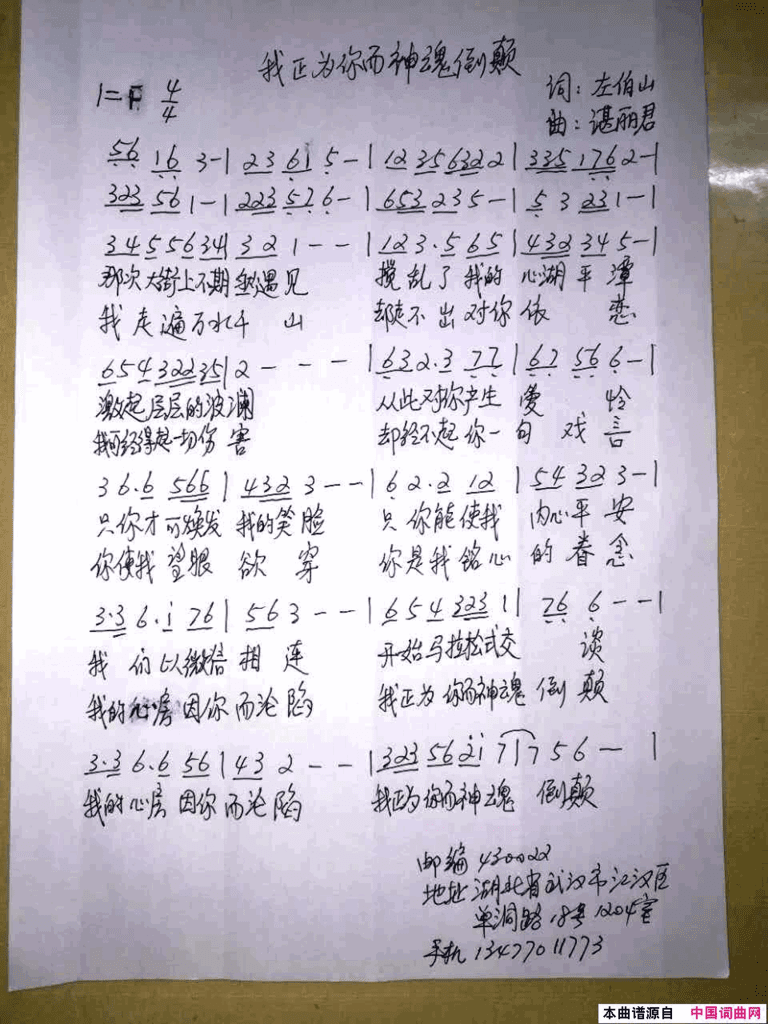 我正为你而神魂倒颠
1=F 4/4
词：左伯山
曲：谌丽君
56 16 3-|23 61 5-|12 35 6322|335 176 2-|
323 56 1-|223 576-|653 235-|5 3 231-|
3455634|321--|123.565|432345-|
那次大街上不期 遇见 搅乱了我的 心湖平潭
我走遍万水千 山 却走不出对你依 恋
65432235|2---|632.377|67566-|
激起层层的波澜 从此对你产生 爱 怜
我可经得起一切伤害 却经不起你一句 戏言
36.6 566|432 3--|62.2 12|54 32 3-|
只你才可焕发 我的笑脸 只你能使我 内心平安
你使我望眼 欲 穿 你是我铭心 的眷念
3.3 6.i 76|56 3--|654 323 1|76 6--|
我们以微信 相 连 开始马拉松式交 谈
我的心房因你而沦陷 我正为你而神魂倒颠
3.3 6.6 56|43 2--|323 56 2i 7|7 5 6- |
我的心房因你而沦陷 我正为你而神魂 倒颠
邮编 430022
地址 湖北省武汉市江汉区
单洞路18号1204室
手机 13477011773
本曲谱源自 中国词曲网